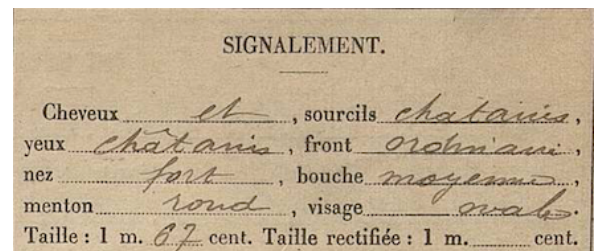 SIGNALEMENT.
Cheveux et, sourcils chatains,
yeux châtains, front ordinaire,
nez fort, bouche moyenne,
menton rond, visage ovale.
Taille : 1 m. 67 cent. Taille rectifiée : 1 m. cent.